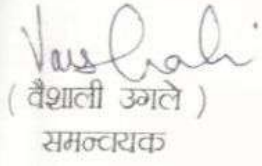 Vaishali
( वैशाली उगले )
समन्वयक